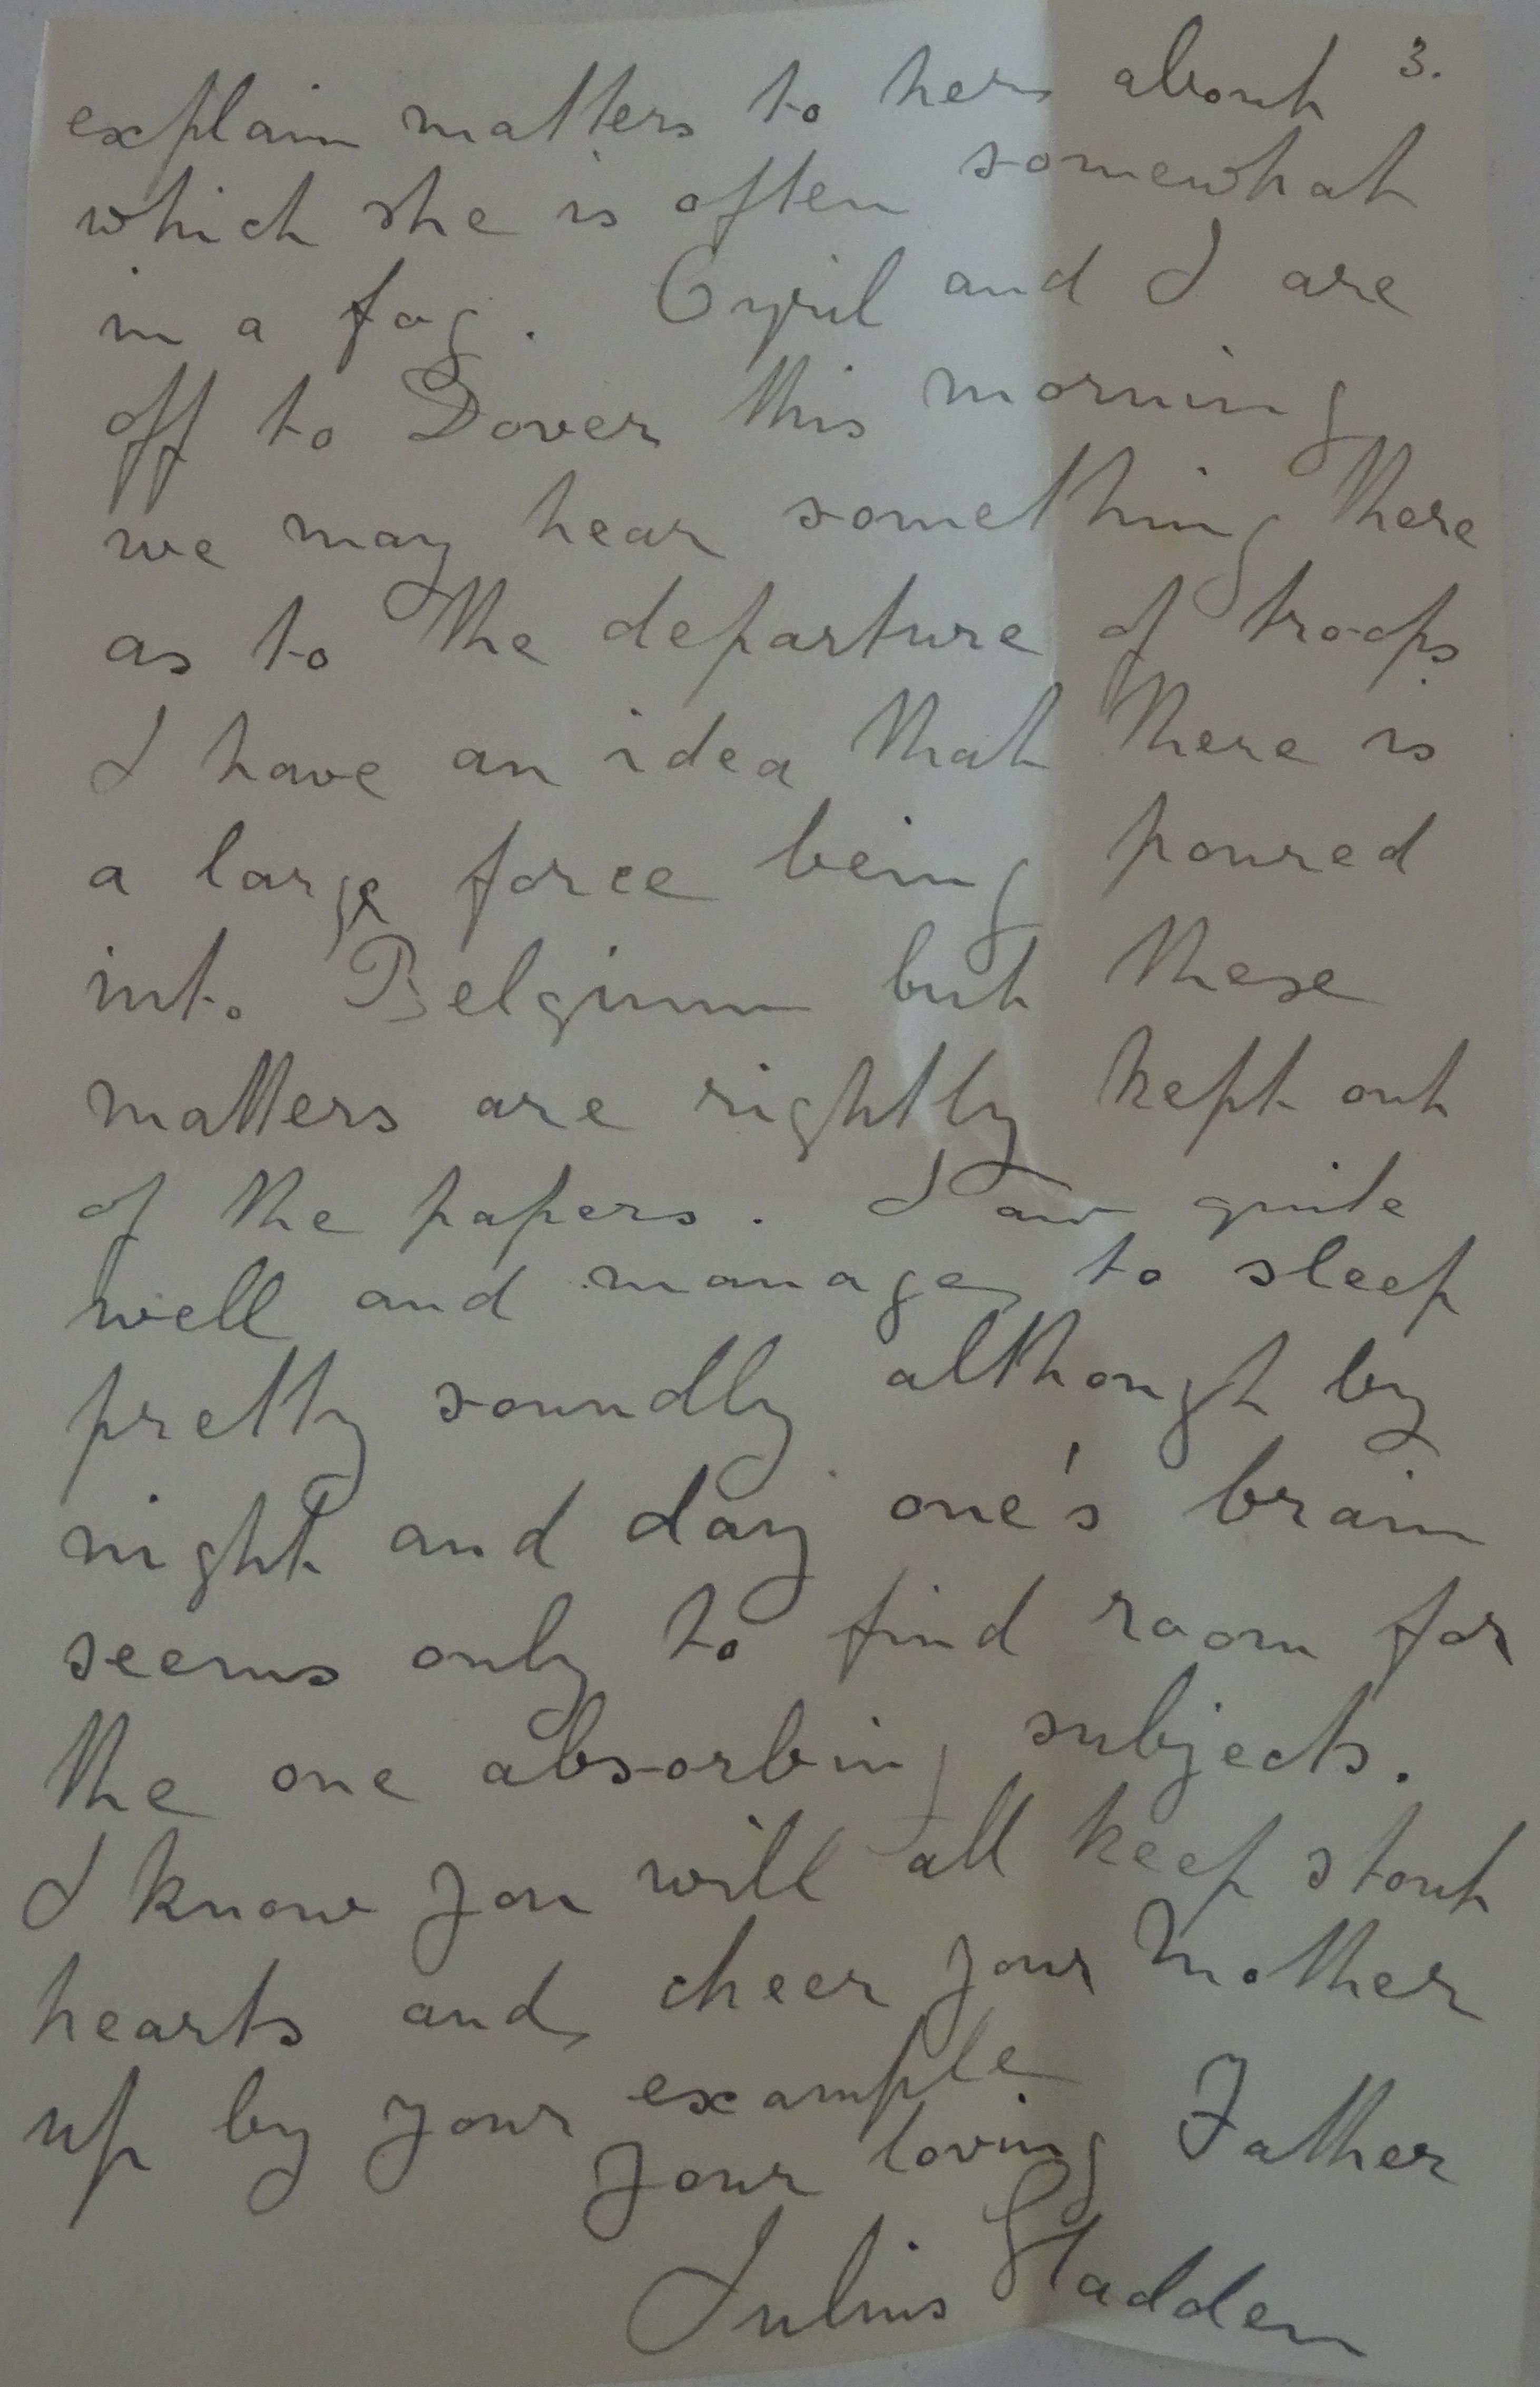 3.
explain matters to her about
which she is often somewhat
in a fog. Cyril and I are
off to Dover this morning
we may hear something there
as to the departure of troops
I have an idea that there is
a large force being poured
into Belgium but these
matters are rightly kept out
of the papers. I am quite
well and manage to sleep
pretty soundly although by
night and day one's brain
seems only to find room for
the one absorbing subjects.
I know you will all keep stout
hearts and cheer your Mother
up by your example
Your loving Father
Julius Sladden